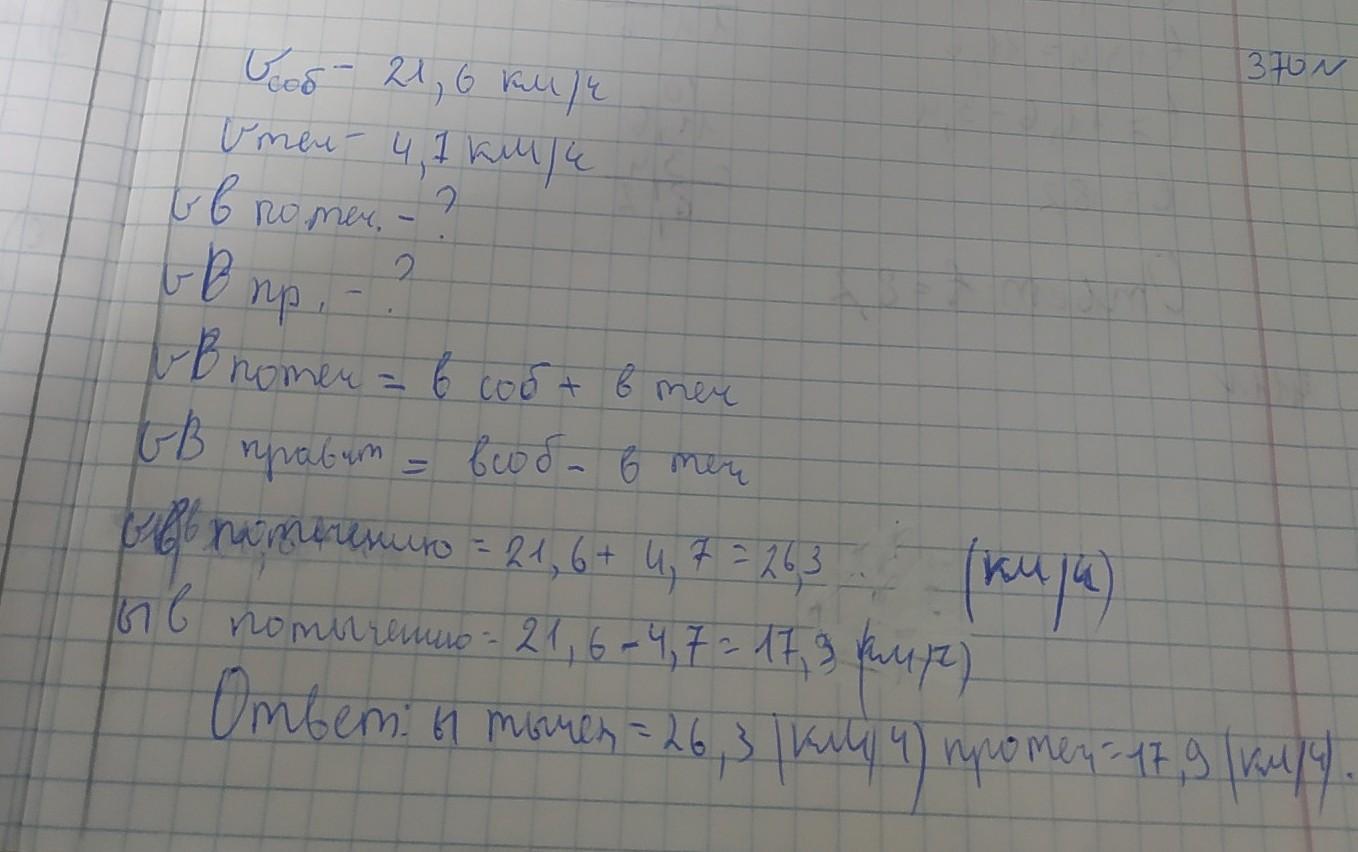 370№
Vсоб - 21,6 км/ч
Vтеч - 4,7 км/ч
V в по теч. - ?
V В пр. - ?
V В по теч = в соб + в теч
V В правит = в соб - в теч
потичению = 21,6 + 4,7 = 26,3 (км/ч)
ы в потычению = 21,6 - 4,7 = 17,9 (км/ч)
Ответ: ы тычен = 26,3 (км/ч) протеч = 17,9 (км/ч).